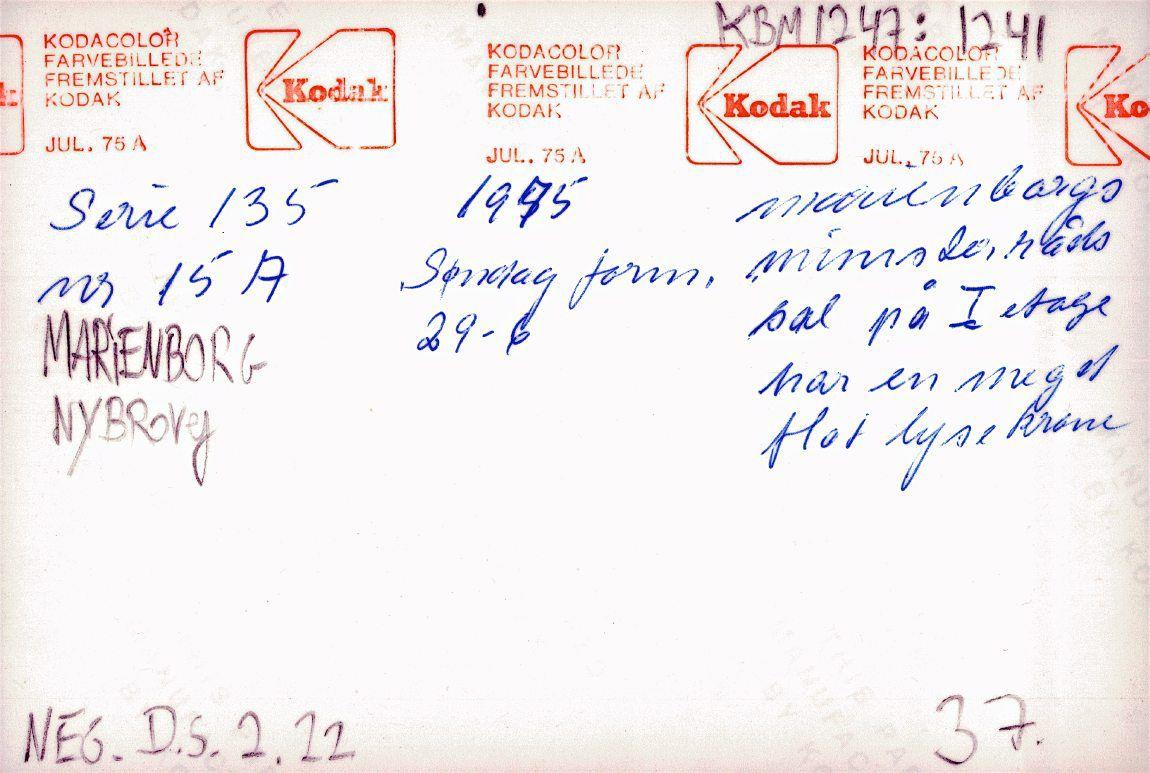 KBM1247: 1241
KODACOLOR
FARVEBILLEDE
FREMSTILLET AF
KODAK
JUL. 75 A
Kodak
KODACOLOR
FARVEBILLEDE
FREMSTILLET AF
KODAK
JUL. 75 A
Kodak
KODACOLOR
FARVEBILLEDE
FREMSTILLET AF
KODAK
JUL. 75 A
Ko
Serie 135
nr 15 A
MARIENBORG
NYBROVej
1975
Søndag form.
29-6
marienborgs
ministerråds
sal på I etage
har en meget
flot lysekrone
NEG. D.S. 2. 22
37.